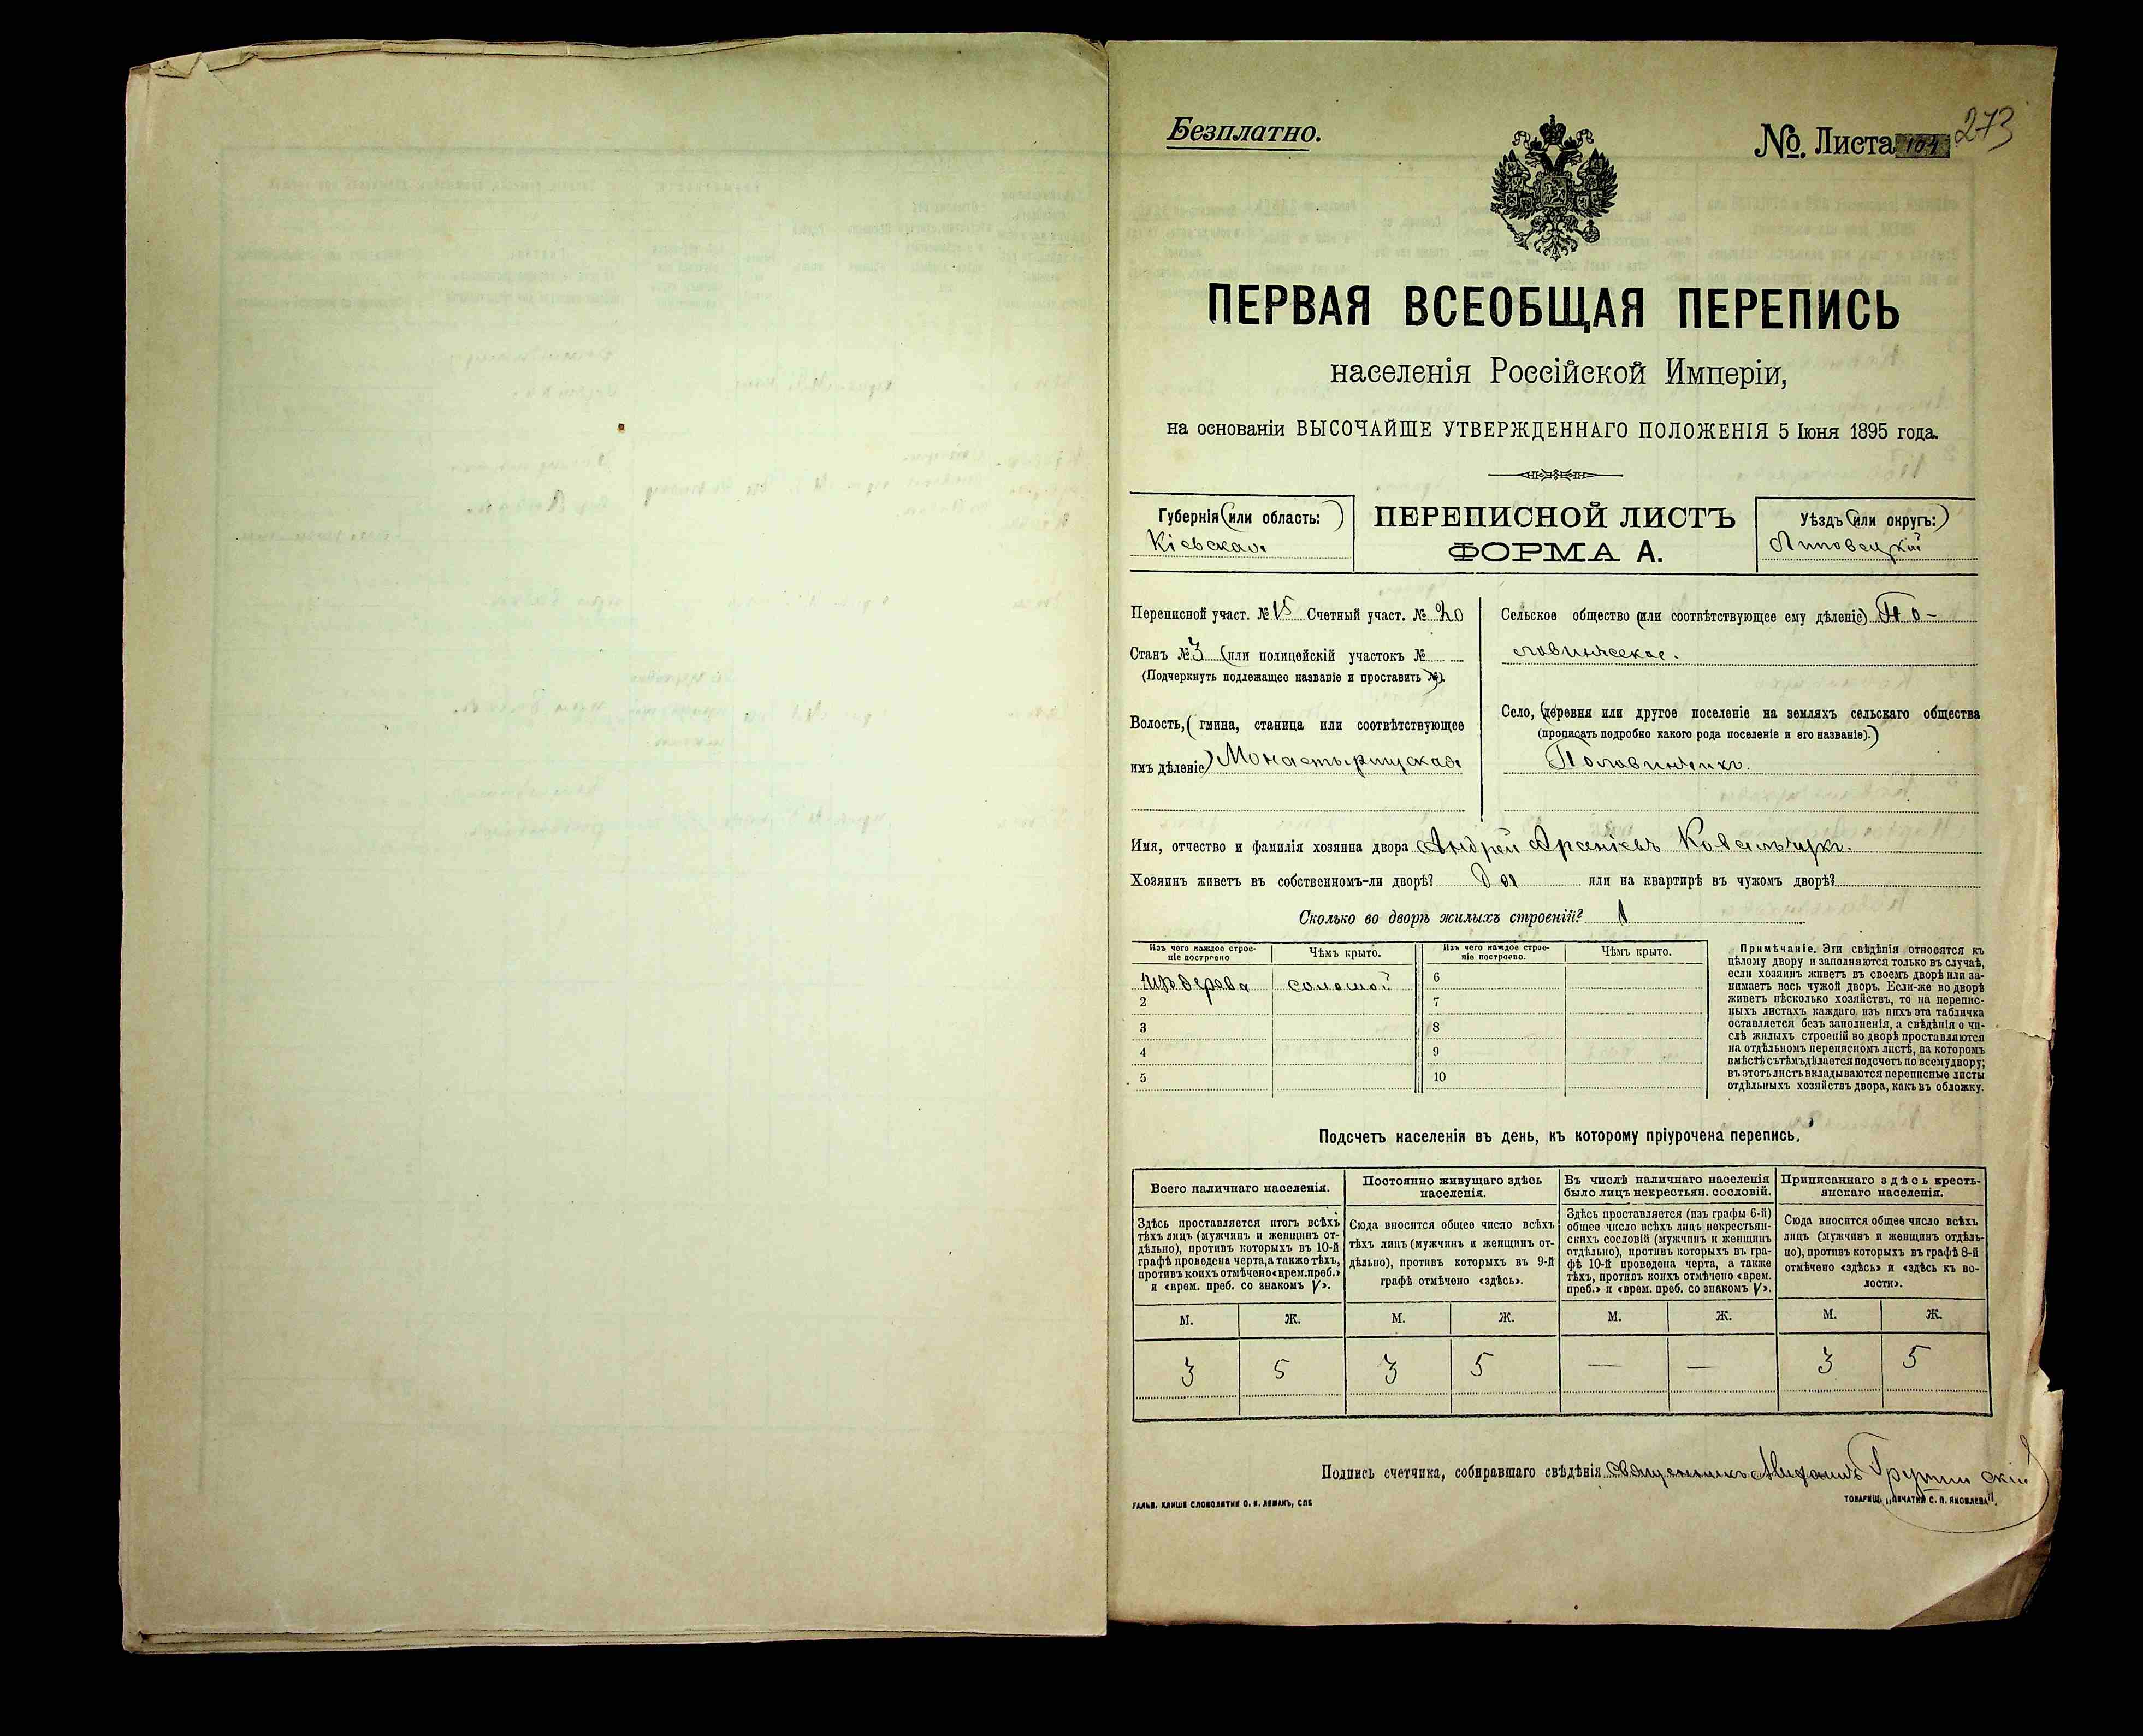 Безплатно.
№. Листа 104
273
ПЕРВАЯ ВСЕОБЩАЯ ПЕРЕПИСЬ
населенія Россійской Имперіи,
на основаніи ВЫСОЧАЙШЕ УТВЕРЖДЕННАГО ПОЛОЖЕНІЯ 5 Іюня 1895 года.
Губернія (или область:)
Кіевская
ПЕРЕПИСНОЙ ЛИСТЪ
ФОРМА А.
Уѣздъ (или округъ:)
Липовецкій
Переписной участ. № 15 Счетный участ. № 20
Станъ № 3 (или полицейскій участокъ №
(Подчеркнуть подлежащее названіе и проставить №).
Волость, (гмина, станица или соотвѣтствующее
имъ дѣленіе) Монастырищская
Сельское общество (или соотвѣтствующее ему дѣленіе) По-
ловинчское.
Село, (деревня или другое поселеніе на земляхъ сельскаго общества
(прописать подробно какого рода поселеніе и его названіе).)
Половинчикъ.
Имя, отчество и фамилія хозяина двора Андрей Ковальчукъ.
Хозяинъ живетъ въ собственномъ-ли дворѣ? Да или на квартирѣ въ чужомъ дворѣ?
Сколько во дворѣ жилыхъ строеній? 1
Изъ чего каждое строе-
ніе построено
Чѣмъ крыто.
Изъ чего каждое строе-
ніе построено.
Чѣмъ крыто.
Изъ дерева соломой
2
3
4
5
6
7
8
9
10
Примѣчаніе. Эти свѣдѣнія относятся къ
цѣлому двору и заполняются только въ случаѣ,
если хозяинъ живетъ въ своемъ дворѣ или за-
нимаетъ весь чужой дворъ. Если-же во дворѣ
живетъ нѣсколько хозяйствъ, то на перепис-
ныхъ листахъ каждаго изъ нихъ эта табличка
оставляется безъ заполненія, а свѣдѣнія о чи-
слѣ жилыхъ строеній во дворѣ проставляются
на отдѣльномъ переписномъ листѣ, на которомъ
вмѣстѣ съ тѣмъ дѣлается подсчетъ по всему двору;
въ этотъ листъ вкладываются переписные листы
отдѣльныхъ хозяйствъ двора, какъ въ обложку.
Подсчетъ населенія въ день, къ которому пріурочена перепись.
Всего наличнаго населенія.
Постоянно живущаго здѣсь
населенія.
Въ числѣ наличнаго населенія
было лицъ некрестьян. сословій.
Приписаннаго здѣсь кресть-
янскаго населенія.
Здѣсь проставляется итогъ всѣхъ
тѣхъ лицъ (мужчинъ и женщинъ от-
дѣльно), противъ которыхъ въ 10-й
графѣ проведена черта, а также тѣхъ,
противъ коихъ отмѣчено «врем. преб.»
и «врем. преб. со знакомъ V».
Сюда вносится общее число всѣхъ
тѣхъ лицъ (мужчинъ и женщинъ от-
дѣльно), противъ которыхъ въ 9-й
графѣ отмѣчено «здѣсь».
Здѣсь проставляется (изъ графы 6-й)
общее число всѣхъ лицъ некрестьян-
скихъ сословій (мужчинъ и женщинъ
отдѣльно), противъ которыхъ въ гра-
фѣ 10-й проведена черта, а также
тѣхъ, противъ коихъ отмѣчено «врем.
преб.» и «врем. преб. со знакомъ V».
Сюда вносится общее число всѣхъ
лицъ (мужчинъ и женщинъ отдѣль-
но), противъ которыхъ въ графѣ 8-й
отмѣчено «здѣсь» и «здѣсь къ во-
лости».
М. Ж. М. Ж. М. Ж. М. Ж.
3 5 3 5 — — 3 5
Подпись счетчика, собиравшаго свѣдѣнія священникъ Михаилъ
ГАЛЬВ. КЛИШЕ СЛОВОЛИТНИ О. И. ЛЕМАНЪ, СПБ
ТОВАРИЩ. „ПЕЧАТНЯ С. П. ЯКОВЛЕВА".